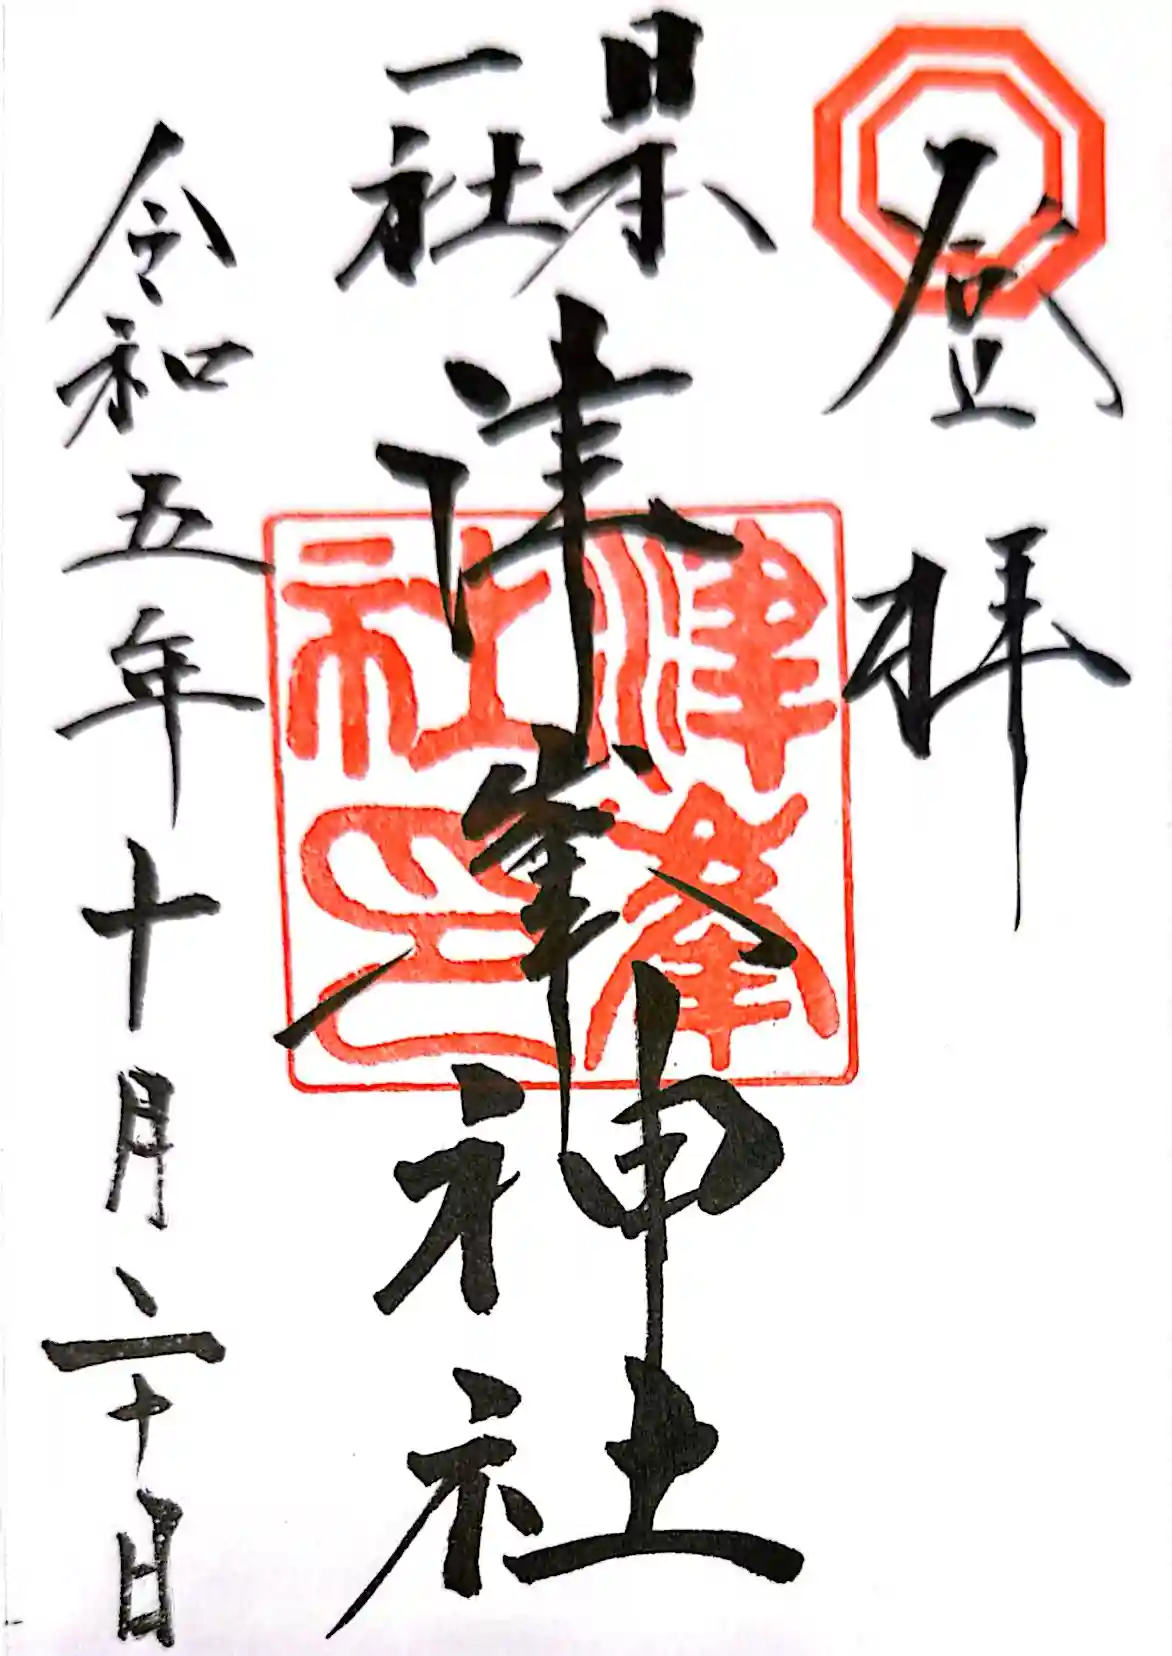 登拝
一社
津峯神社
津峯
社印
令和五年十月二十日